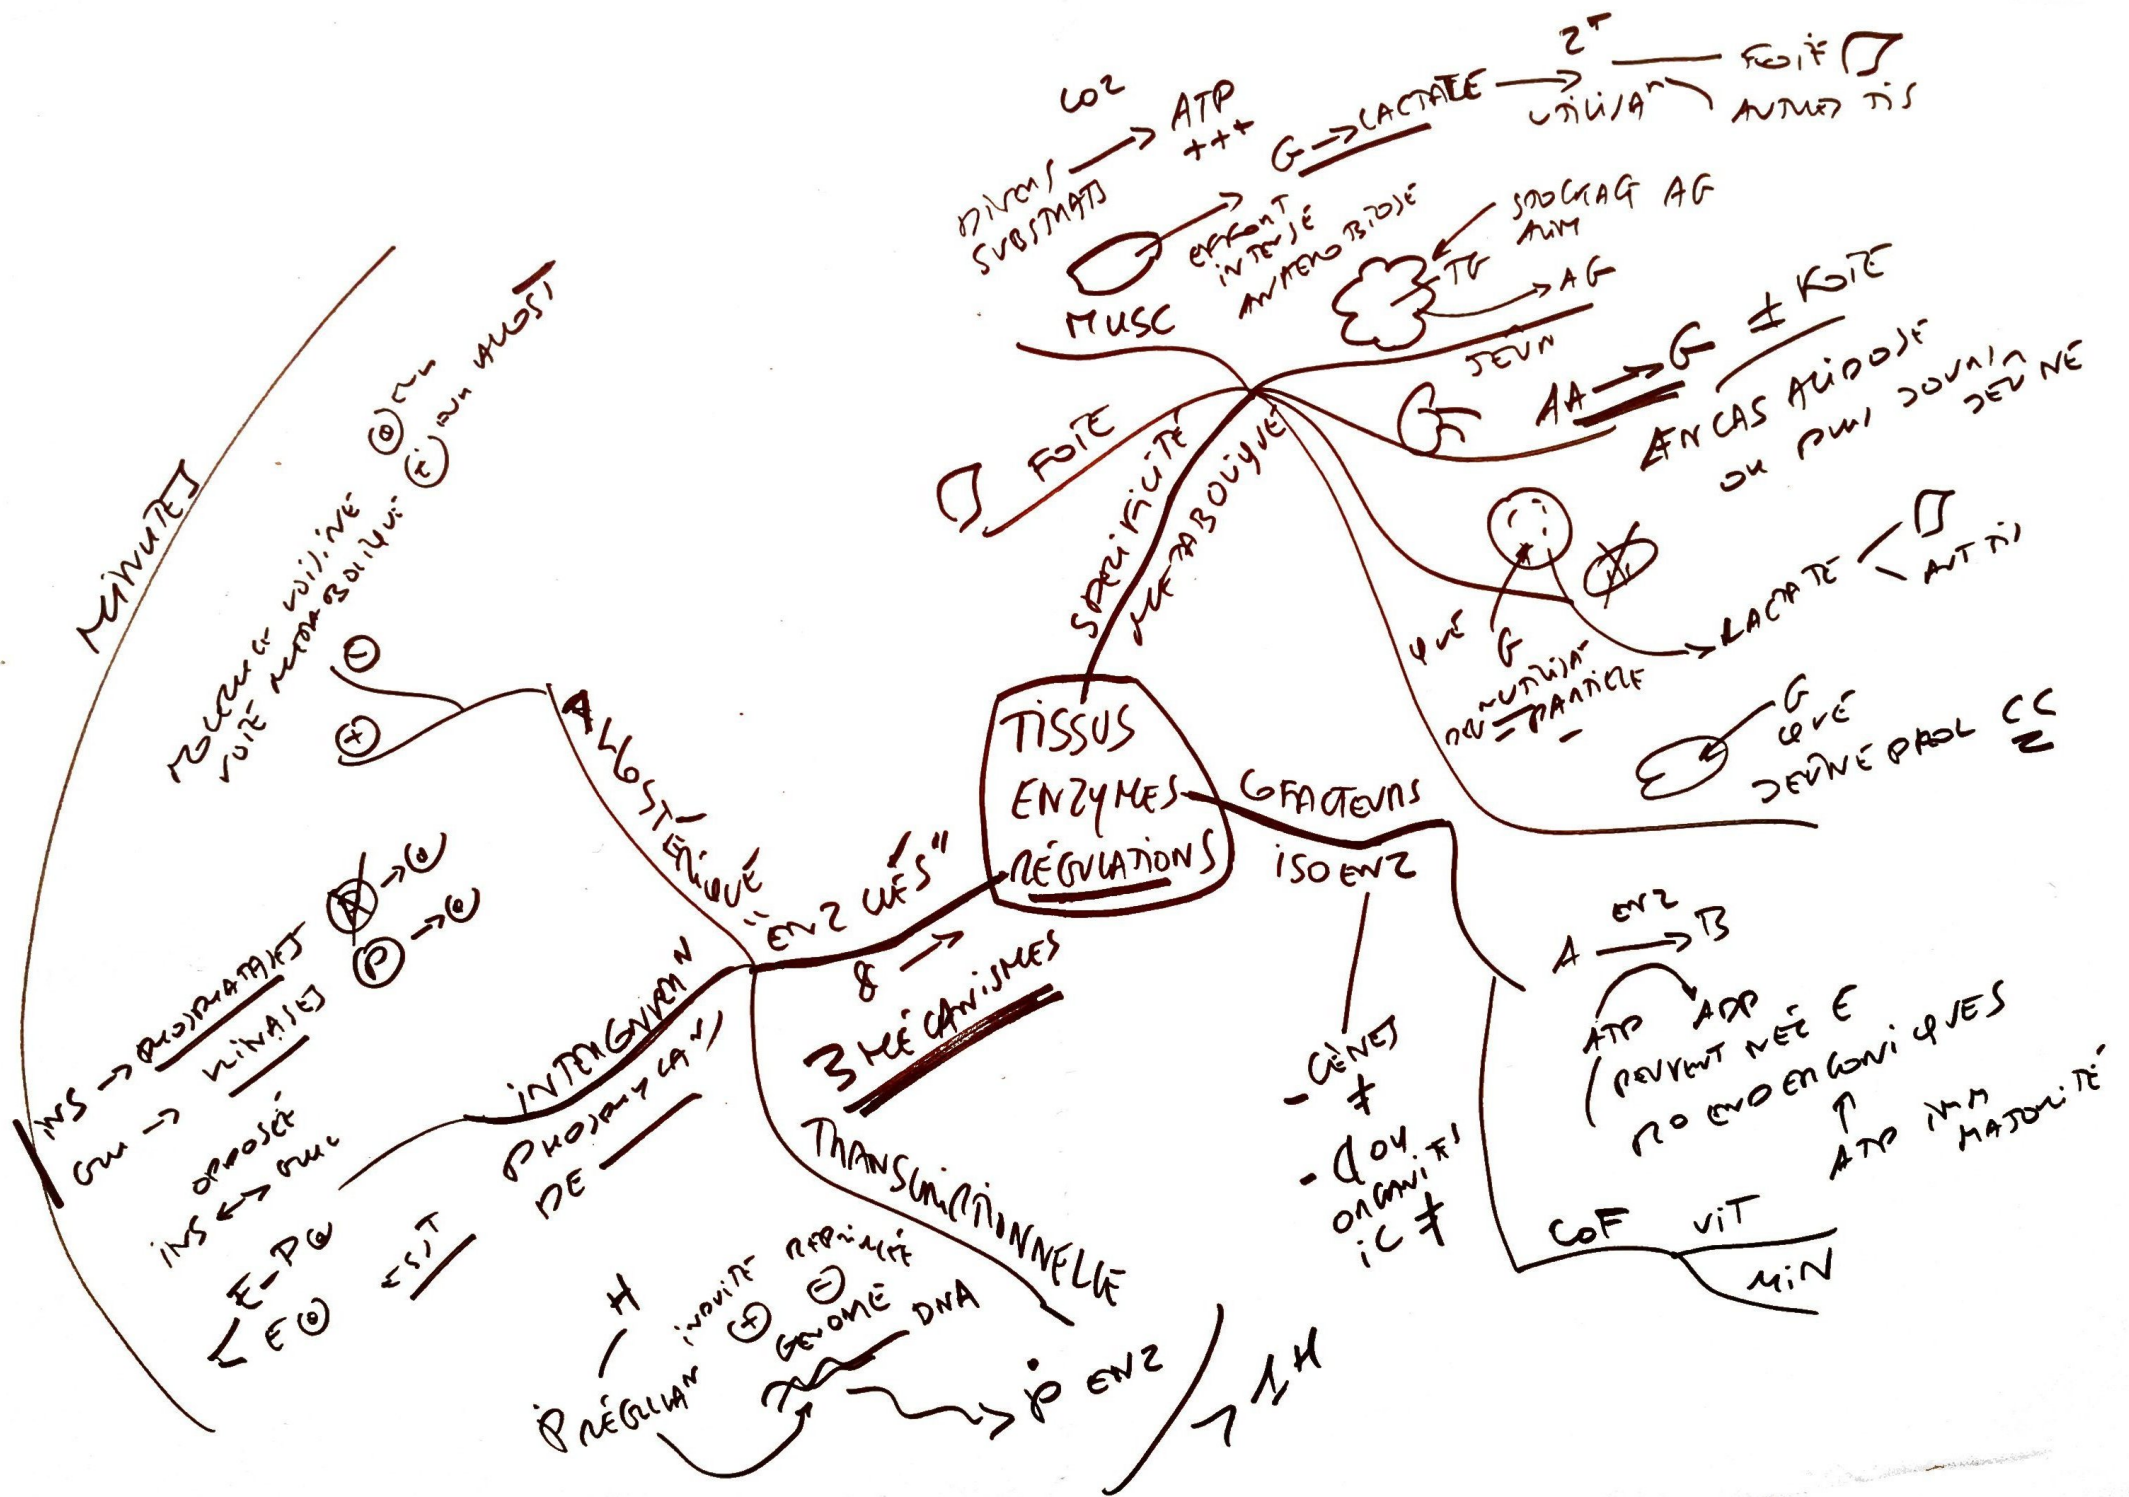 TISSUS
ENZYMES
RÉGULATIONS
SPÉCIFICITÉ
MÉTABOLIQUE
FOIE
MUSC
DIVERS
SUBSTRATS
CO2
ATP
+++
EFFORT
INTENSE
ANAEROBIOSE
G → LACTATE →
UTILISAⁿ
FOIE
AUTRES TIS
STOCKAG AG
ALIM
TG
→ AG
JEUN
AA → G ± FOIE
EN CAS ACIDOSE
OU JEUNE
QUE G
UTILISAⁿ
PARTIELLE
→ LACTATE
AUT TIS
G
QUE
JEUNE PROL CC
6 FACTEURS
ISOENZ
- GÈNES
≠
- OU
ORGANITES
IC ≠
A → B
ENZ
ATP ADP
PEUVENT NÉC E
RO ENDERGONIQUES
↑
ATP IMM
MAJORITÉ
COF
VIT
MIN
"ENZ CLÉS"
8 →
3 MÉCANISMES
ALLOSTÉRIQUE
⊖
⊕
MOLECULE VOISINE
VOIE METABOLIQUE
MINUTES
INTERCONVERⁿ
PHOSPHYLAⁿ
DE
INS → PHOSPHATASES
GLU → KINASES
P
OPPOSÉE
INS ↔ GLUC
E-P
E
EST
TRANSCRIPTIONNELLE
H
INDUITE REPRIMÉE
⊕ ⊖
GENOME DNA
P RÉGULAⁿ
→ P ENZ
1H